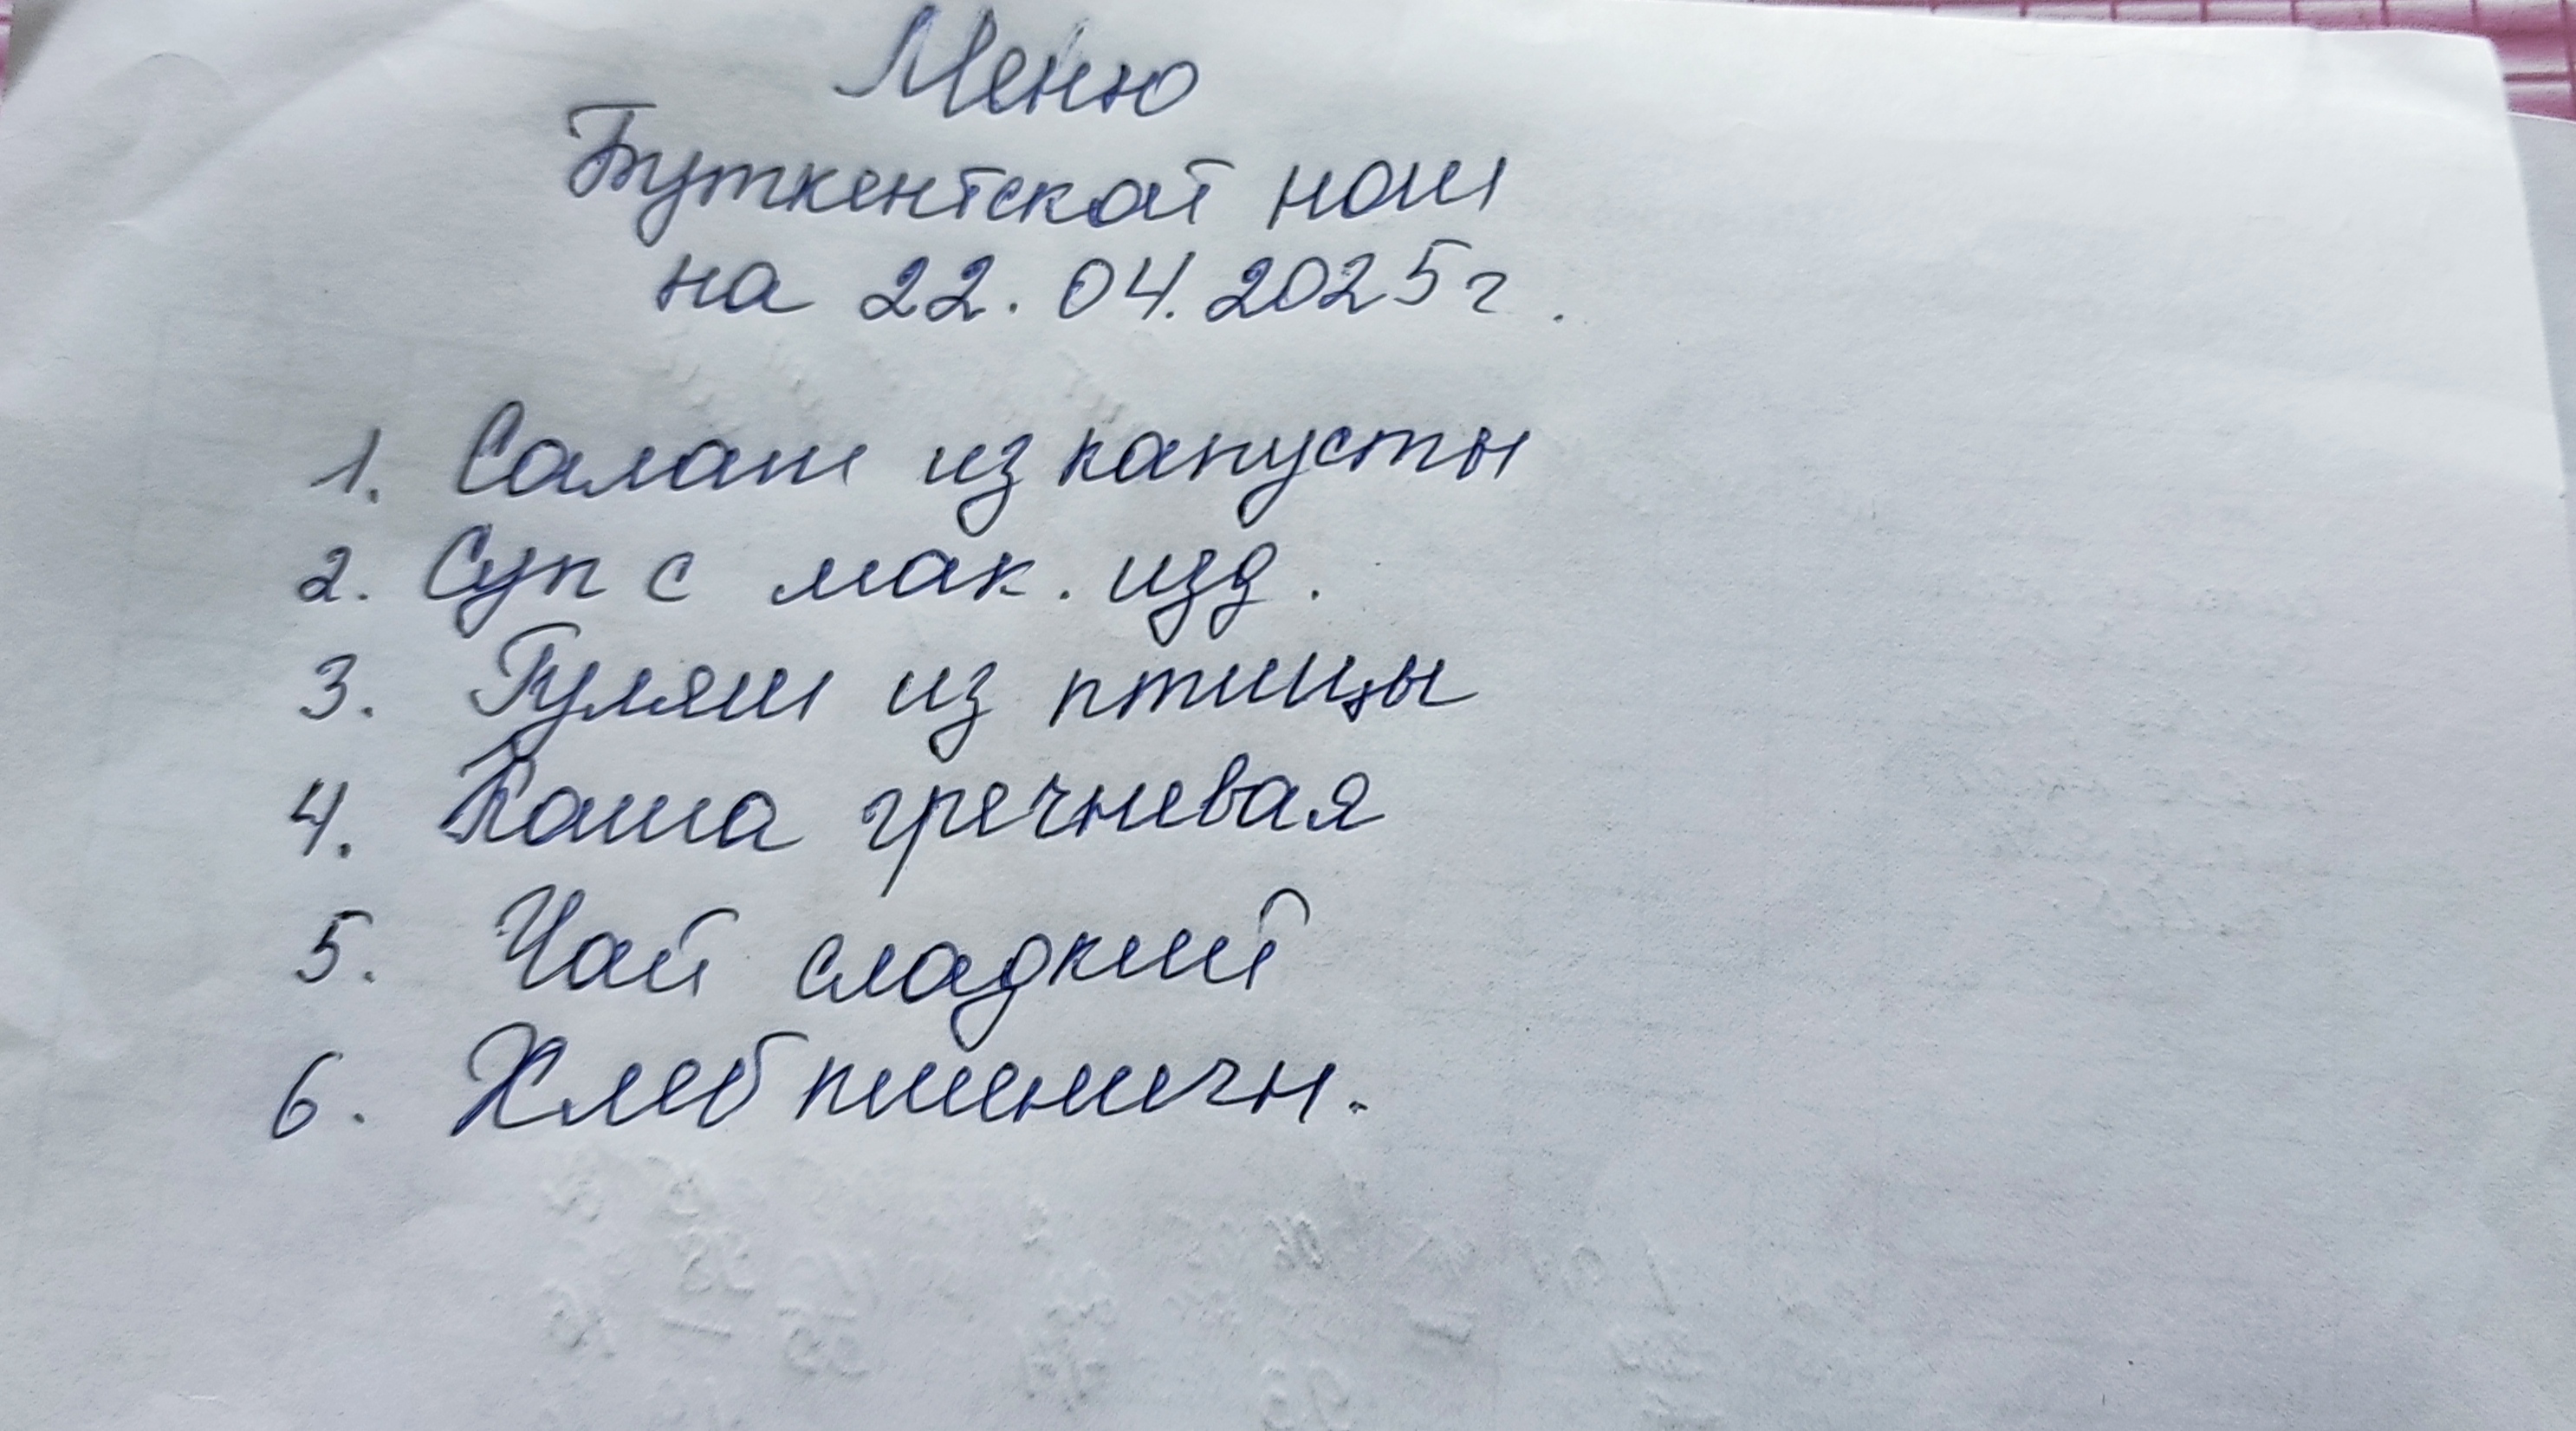 Меню
Буткентской нош
на 22.04.2025г.
1. Салат из капусты
2. Суп с мак. изд.
3. Гуляш из птицы
4. Каша гречневая
5. Чай сладкий
6. Хлеб пшеничн.